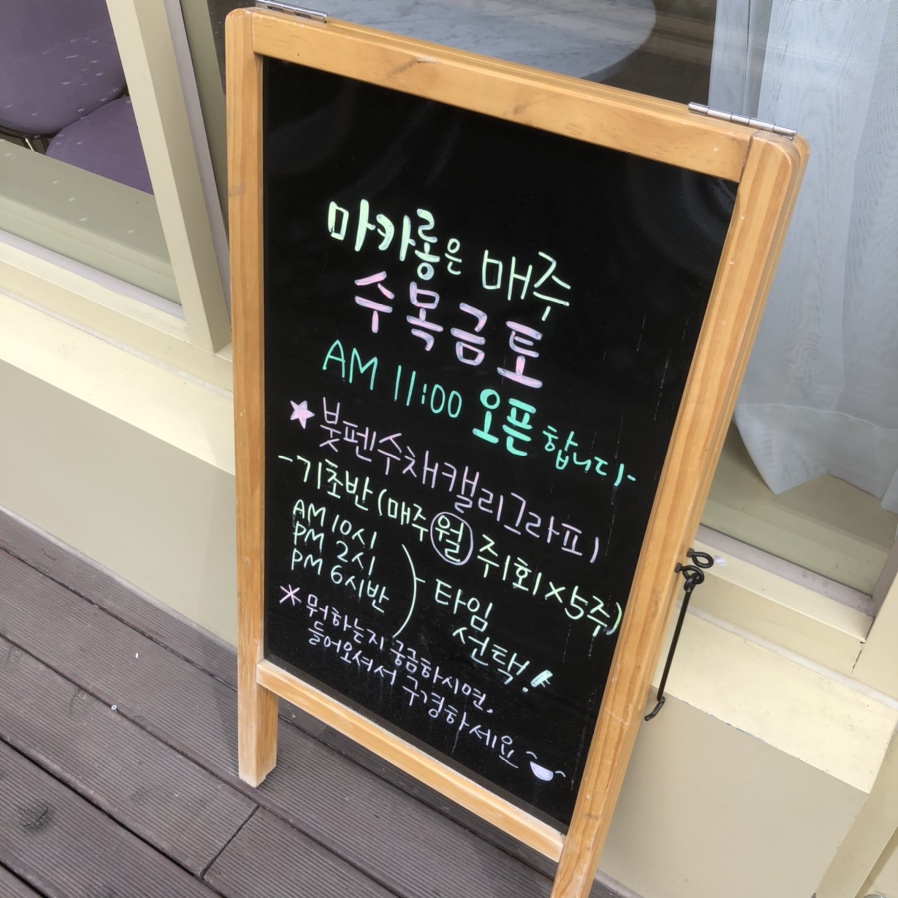 마카롱은 매주
수목금토
AM 11:00 오픈합니다-
★붓펜수채캘리그라피)
-기초반(매주월 주1회×5주)
AM 10시
PM 2시
PM 6시반
타임
선택!
*뭐하는지 궁금하시면.
들어오셔서 구경하세요